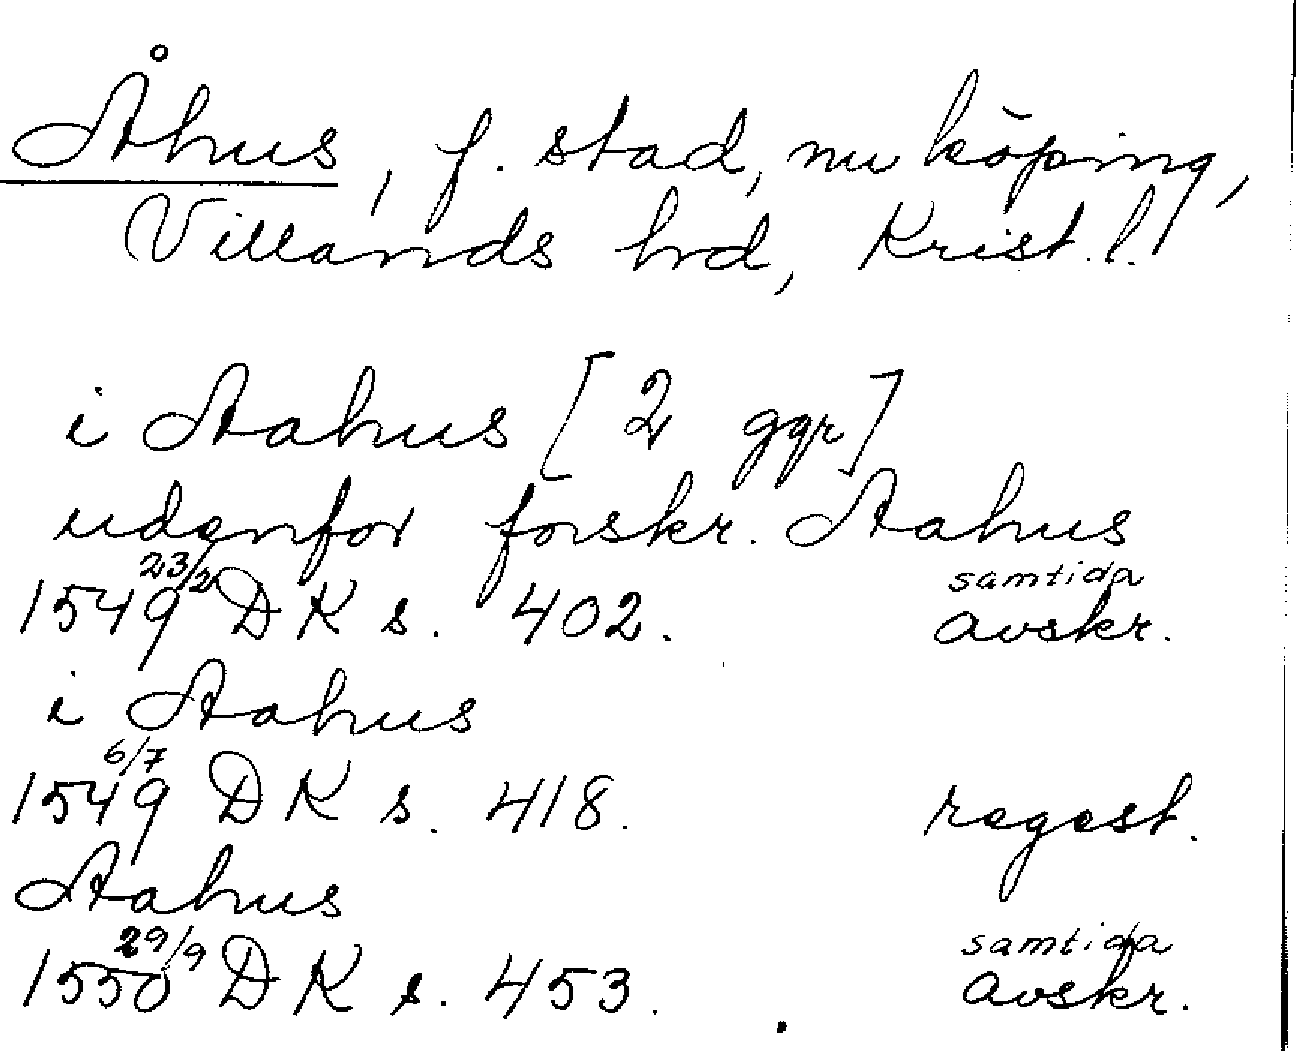 Åhus, f. stad, nu köping,
Villands hd, Krist. l.
i Aahus [2 ggr]
udenfor förskr. Aahus
1549 23/2 DK s. 402. samtida avskr.
i Aahus
1549 6/7 DK s. 418. regest.
Aahus
1550 29/9 DK s. 453. samtida avskr.